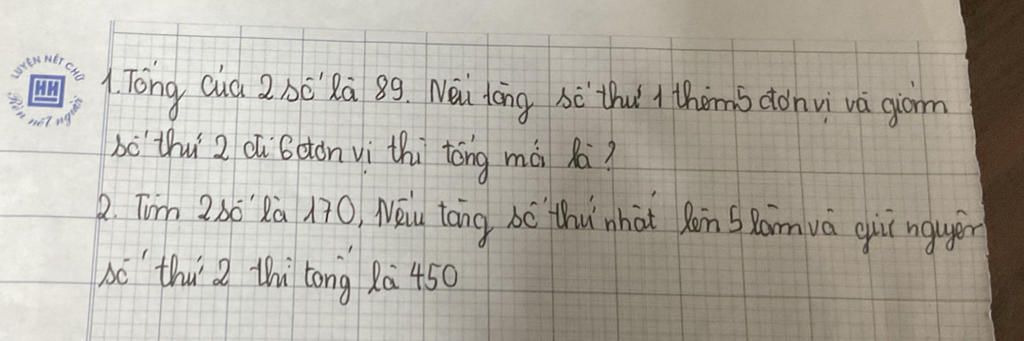 LUYỆN NÉT CHỮ
HH
Rèn nết người
1. Tổng của 2 số là 89. Nếu tăng số thứ 1 thêm 5 đơn vị và giảm
số thứ 2 đi 6 đơn vị thì tổng mới là?
2. Tìm 2 số là 170, Nếu tăng số thứ nhất lên 5 lần và giữ nguyên
số thứ 2 thì tổng là 450